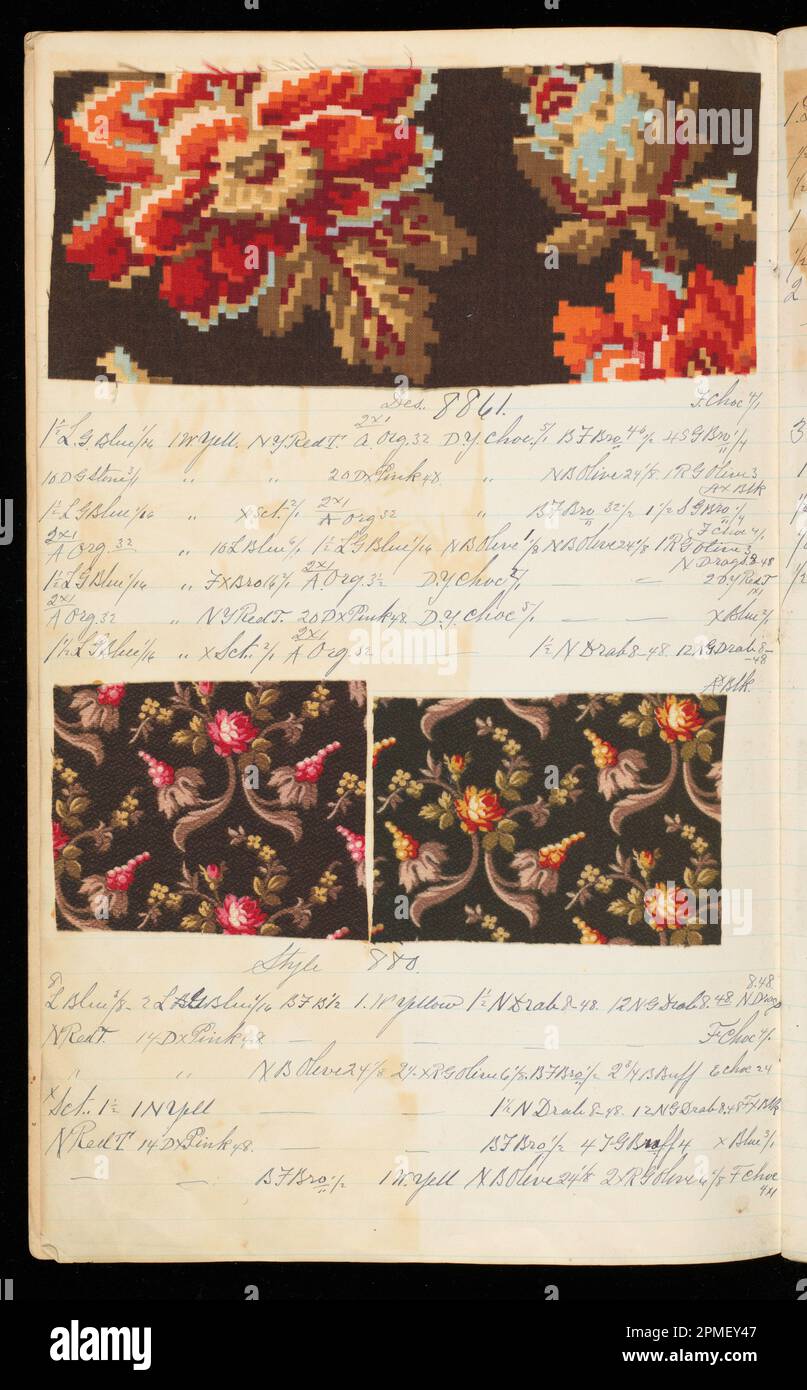 Des. 8861.
F Choc 4/1
1½ L.G Blue 1/16 1 W Yell. N Y Red T. 2x1 A. Org. 32 D Y Choc. 5/1 B F Bro 46/2 4 S G Bro 1/4
10 D G Stone 3/1 " " 20 D x Pink 48 " N B Olive 24 1/8 1 R G Olive 3
A x Blk
1½ L G Blue 1/16 " x Sct. 2/1 2x1 A Org 32 B F Bro 32 1/2 1 1/2 S G Bro 1/4
F Choc 4/1
2x1 A Org. 32 " 10 L Blue 1½ L G Blue 1/16 N B Olive 1/8 N B Olive 24 1/8 1 R G Olive 3
N Drags. 8-48
1½ L G Blue 1/16 " F x Bro 16 2x1 A. Org. D. Y Choc 5/1 — 2 D Y Red T
1x1
2x1 A Org. 32 " N Y Red T. 20 D x Pink 48 D. Y. Choc 5/1 — — x Blue 2/1
1½ L G Blue 1/16 " x Sct. 2/1 2x1 A Org. 32 — 1½ N Drab 8-48. 12 N G Drab 8-48
A x Blk.
Style 880.
8 L Blue 3/8 - 2 L G Blue 1/16 B F B 1/2 1. W Yellow 1½ N Drab 8-48. 12 N G Drab 8.48 N Drags 8.48
N Red T. 14 D x Pink 48 — — — F Choc 4/1
" " N B Olive 24 1/8 2 x R G Olive 6 1/8. B F Bro 1/2 2 3/4 B Buff E Choc 24
x Sct.. 1½ 1 N Yell — — 1½ N Drab 8-48. 12 N G Drab 8.48 F x Blk
N Red T 14 D x Pink 48. — — B F Bro 1/2 4 F G Buff 4 x Blue 3/1
— — B F Bro 1/2 1 W. Yell N B Olive 24 1/8 2 x R G Olive 6 1/8 F Choc
4x1
alamy
Image ID: 2PMEY47
www.alamy.com